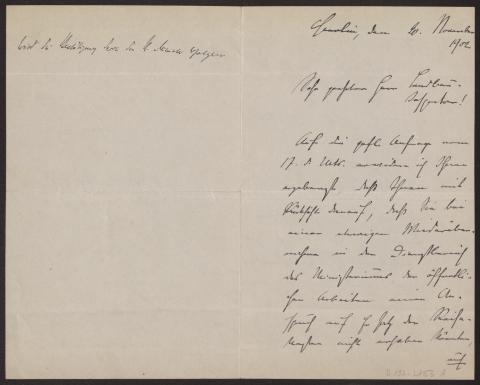 Berlin, den 20. November
1902.
Sehr geehrter Herr Landbau-
Inspektor!
Auf die gefl. Anfrage vom
17. d. Mts. erwidere ich Ihnen
ergebenst, daß Ihnen mit
Rücksicht darauf, daß Sie bei
einer etwaigen Wiederüber-
nahme in den Dienstbereich
des Ministeriums der öffentli-
chen Arbeiten einen An-
spruch auf Ersatz der Reise-
kosten nicht erheben könnten,
auf
wird die Vereidigung